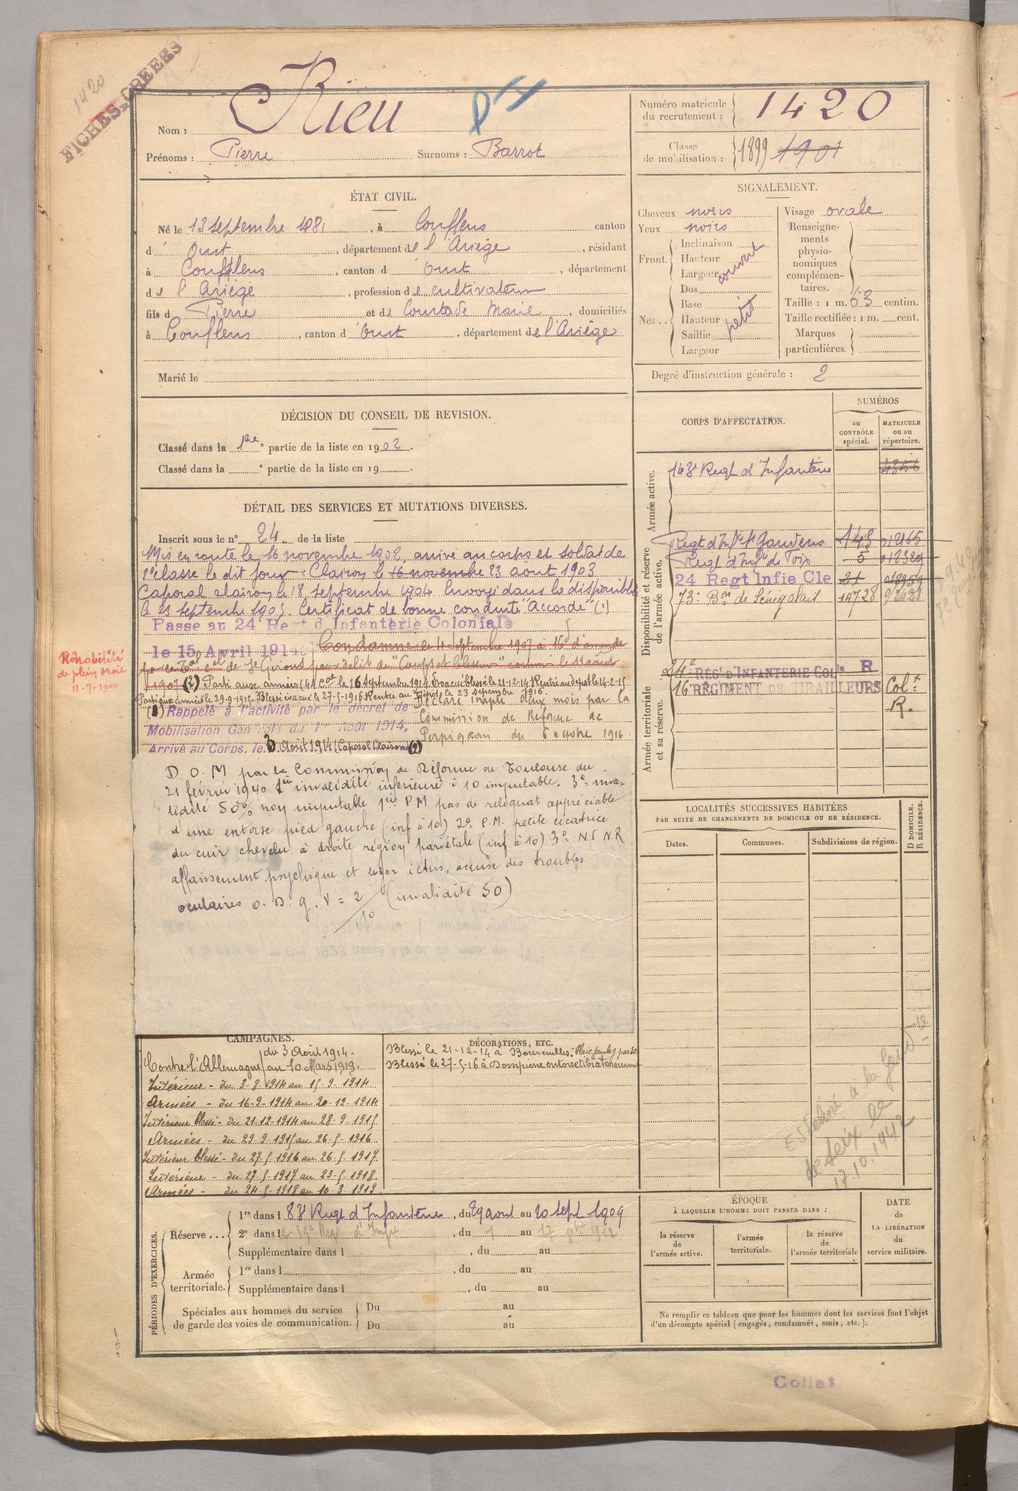 1420
FICHES CRÉÉES
Nom : Rieu
PH
Prénoms : Pierre Surnoms : Barrot
Numéro matricule du recrutement : 1420
Classe de mobilisation : 1899 1901
ÉTAT CIVIL.
Né le 13 septembre 1881, à Couflens canton
d' Oust, département de l'Ariège, résidant
à Couflens, canton d'Oust, département
de l'Ariège, profession de cultivateur
fils de Pierre et de Courtade Marie, domiciliés
à Couflens, canton d'Oust, département de l'Ariège
Marié le
SIGNALEMENT.
Cheveux noirs
Yeux noirs
Front. Inclinaison Hauteur Largeur couvert
Nez. Dos Base Hauteur Saillie Largeur petit
Visage ovale
Renseignements physionomiques complémentaires.
Taille : 1 m. 63 centim.
Taille rectifiée : 1 m. cent.
Marques particulières.
Degré d'instruction générale : 2
DÉCISION DU CONSEIL DE REVISION.
Classé dans la 1re partie de la liste en 1902.
Classé dans la e partie de la liste en 19
DÉTAIL DES SERVICES ET MUTATIONS DIVERSES.
Inscrit sous le n° 24 de la liste
Mis en route le 16 novembre 1902, arrivé au corps et soldat de
2e classe le dit jour. Clairon le 16 novembre 23 août 1903
Caporal clairon le 18 septembre 1904. Envoyé dans la disponibilité
le 23 septembre 1905. Certificat de bonne conduite "Accordé" (1)
Passe au 24e Regt d'Infanterie Coloniale
le 15 Avril 1914
Condamné le 4 septembre 1907 à 16f d'amende
par le Tal de St Girons pour délit de "Coups et blessures"
1907 (2) Parti aux armées le 16 septembre 1914. Evacué blessé le 21-12-14 Rentré au dépôt le 14-2-15
Parti aux armées le 29-9-1915. Blessé évacué le 27-5-1916 Rentré au Dépôt le 23 septembre 1916.
Déclaré inapte deux mois par la
Commission de Réforme de
Perpignan du 6 octobre 1916
(1) Rappelé à l'activité par le décret de
Mobilisation Générale du 1er Août 1914,
Arrivé au Corps, le 3 Août 1914 (Caporal Clairon) (2)
Réhabilité
de plein droit
D.O.M par la Commission de Réforme de Toulouse du
21 février 1940 1re invalidité inférieure à 10 imputable. 3e inva-
lidité 50% non imputable 1er PM pas de reliquat appréciable
d'une entorse pied gauche (inf à 10) 2e P.M. petite cicatrice
du cuir chevelu à droite région pariétale (inf à 10) 3e NI NR
affaissement psychique et ictus, accuse des troubles
oculaires O.D.g. V = 2/10 (invalidité 50)
CORPS D'AFFECTATION.
NUMÉROS
au CONTRÔLE spécial.
MATRICULE ou au répertoire.
Armée active.
Disponibilité et réserve de l'armée active.
Regt d'Infie St Gaudens 148 012165
Regt d'Infie de Foix 5 012329
24 Regt Infie Cle 21
73e Bon de Sénégalais 14728
Armée territoriale et sa réserve.
24e RÉGt D'INFANTERIE COLle R
16e RÉGIMENT DE TIRAILLEURS Col. R.
LOCALITÉS SUCCESSIVES HABITÉES
PAR SUITE DE CHANGEMENTS DE DOMICILE OU DE RÉSIDENCE.
Dates. Communes. Subdivisions de région. D DOMICILE. R RÉSIDENCE.
de Seix le
17.10.1942
CAMPAGNES.
Contre l'Allemagne du 3 Août 1914 au 10 Mars 1919.
Intérieur - du 3-8-1914 au 15-9-1914
Armées - du 16-9-1914 au 20-12-1914
Intérieur blessé - du 21-12-1914 au 28-9-1915
Armées - du 29-9-1915 au 26-5-1916.
Intérieur blessé - du 27-5-1916 au 26-5-1917.
Intérieur - du 27-5-1917 au 23-5-1918.
Armées - du 24-5-1918 au 10-3-1919.
DÉCORATIONS, ETC.
Blessé le 21-12-14 à
Blessé le 27-5-16 à Dompierre entorse
PÉRIODES D'EXERCICES.
Réserve... 1re dans le 88e Regt d'Infanterie, du 29 août au 20 sept 1909
2e dans le Regt d'Infie, du 1 au 17 1912
Supplémentaire dans l , du au
Armée territoriale. 1re dans l , du au
Supplémentaire dans l , du au
Spéciales aux hommes du service de garde des voies de communication. Du au
Du au
ÉPOQUE
À LAQUELLE L'HOMME DOIT PASSER DANS :
la réserve de l'armée active.
l'armée territoriale.
la réserve de l'armée territoriale
DATE de LA LIBÉRATION du service militaire.
Ne remplir ce tableau que pour les hommes dont les services font l'objet
d'un décompte spécial (engagés, condamnés, omis, etc.).
Collat